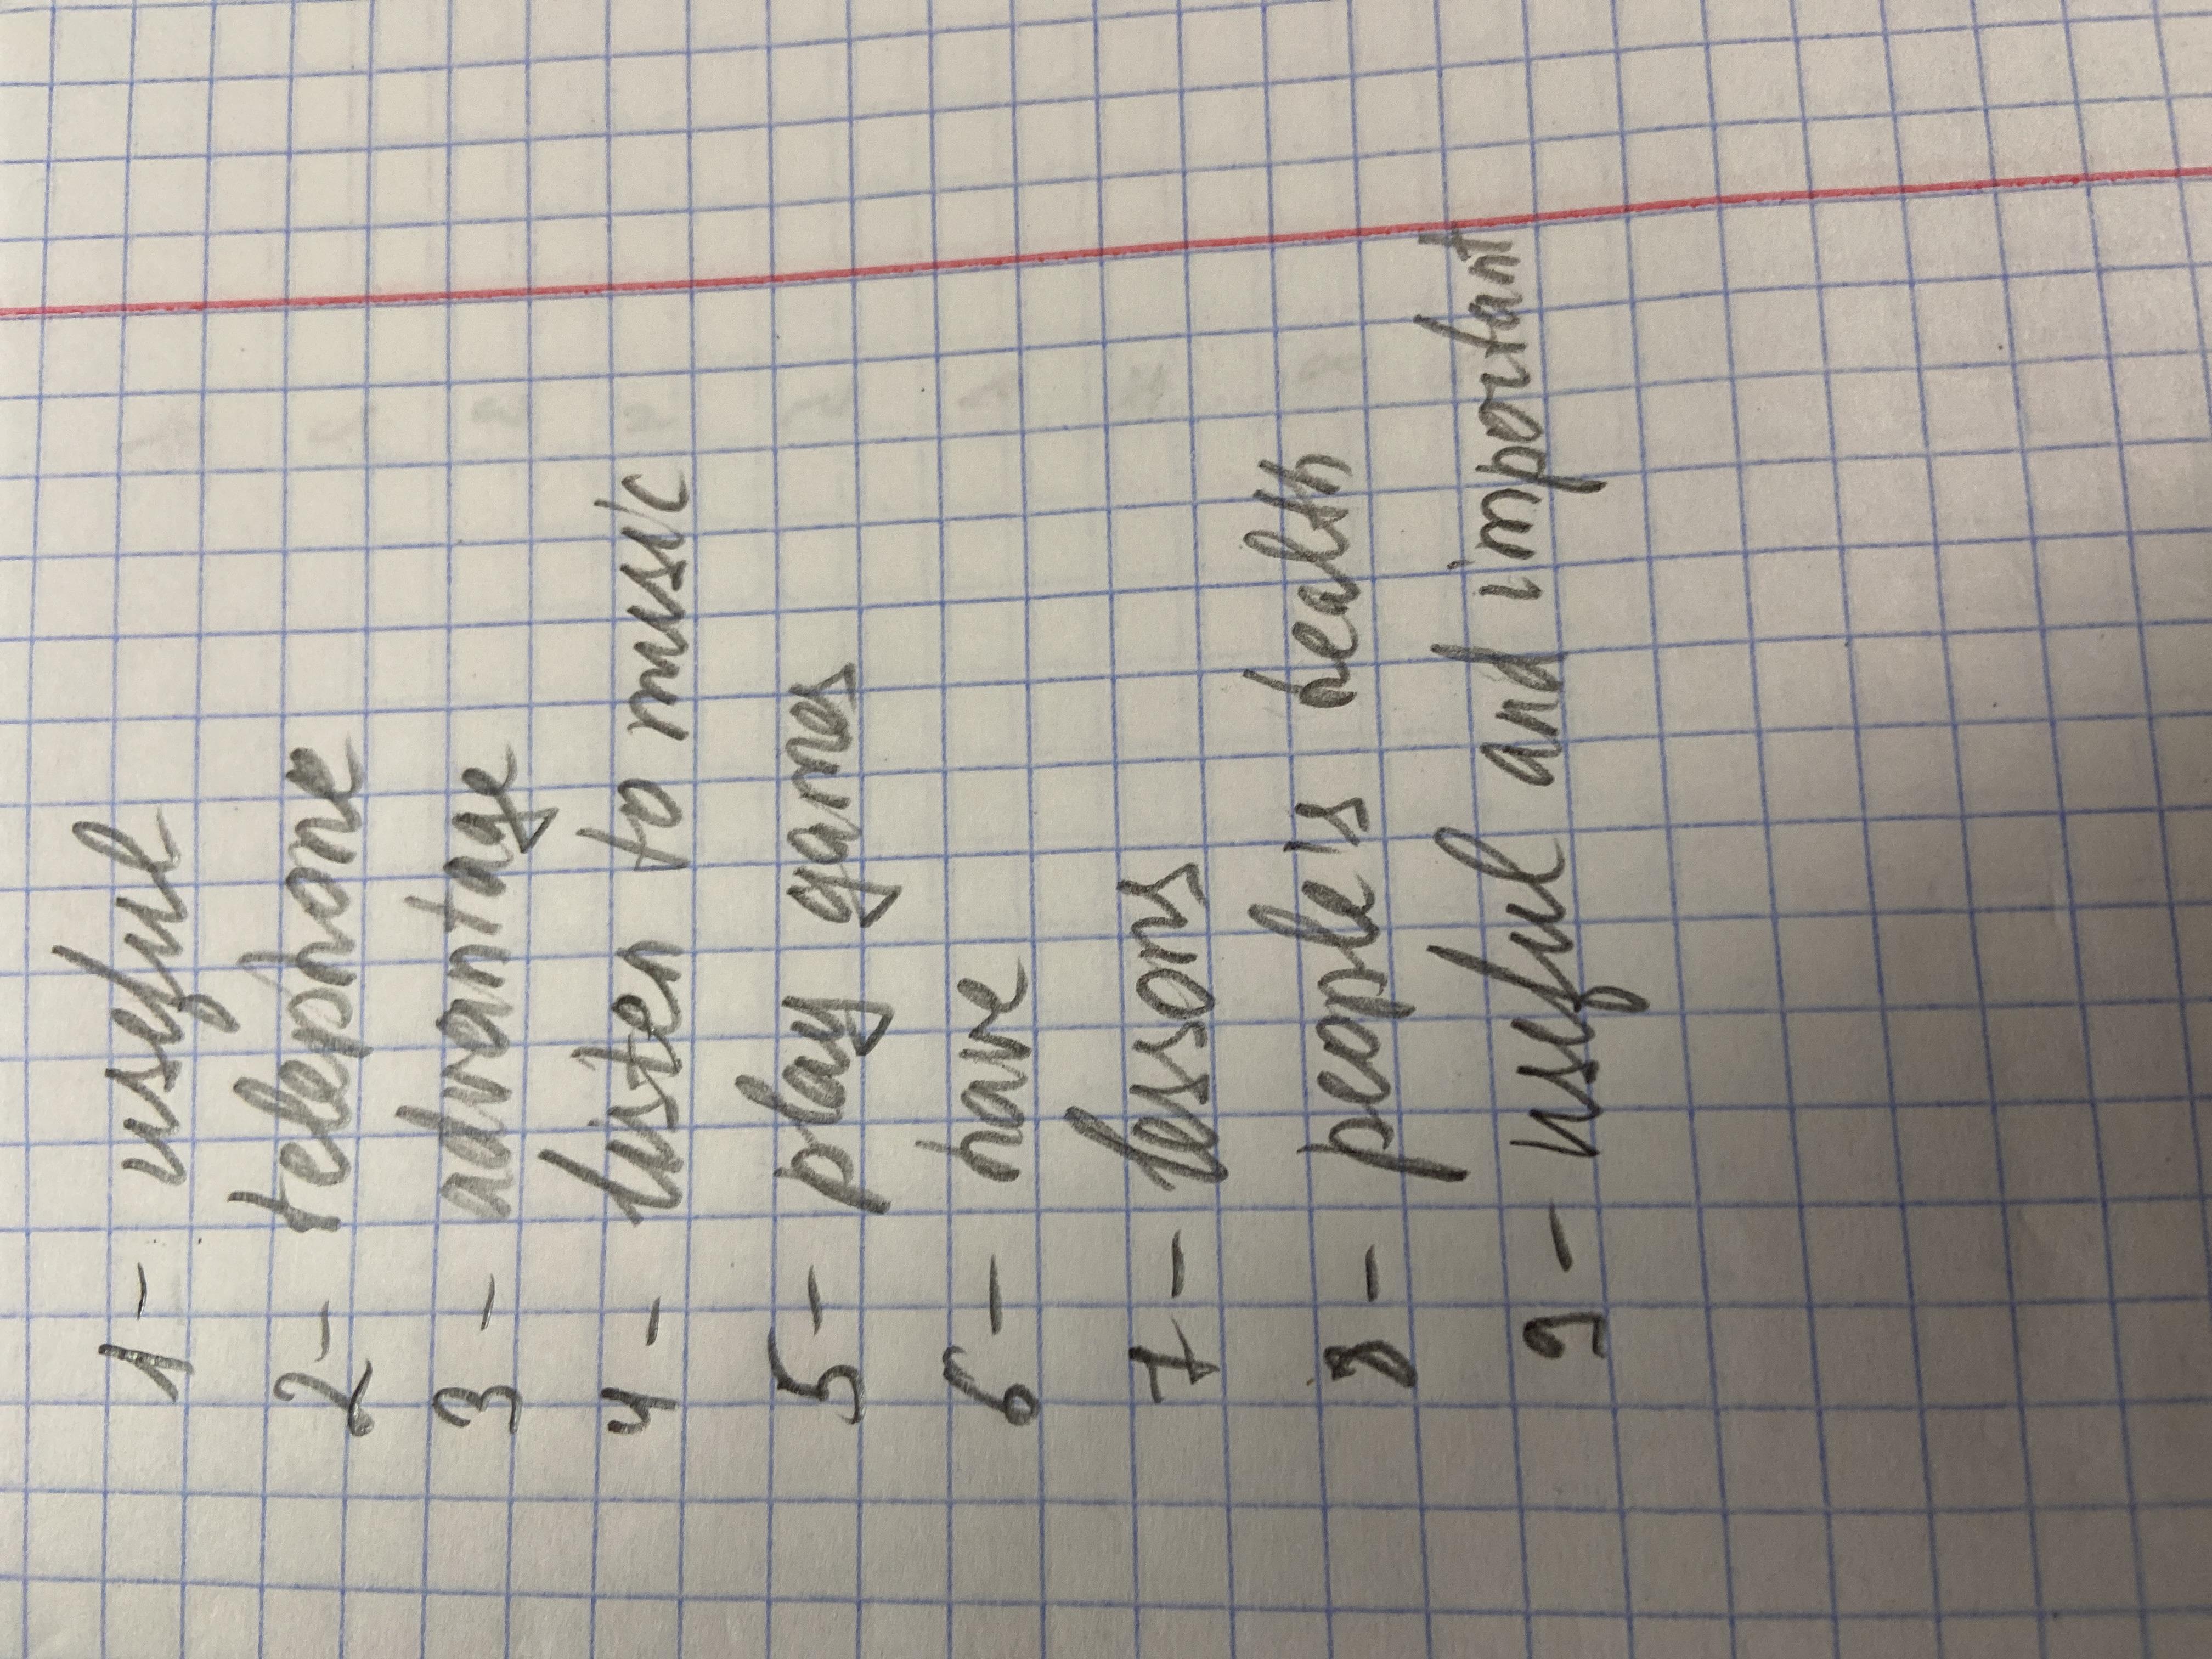 1- useful
2- telephone
3- advantage
4- listen to music
5- play games
6- have
7- lessons
8- people's health
9- useful and important